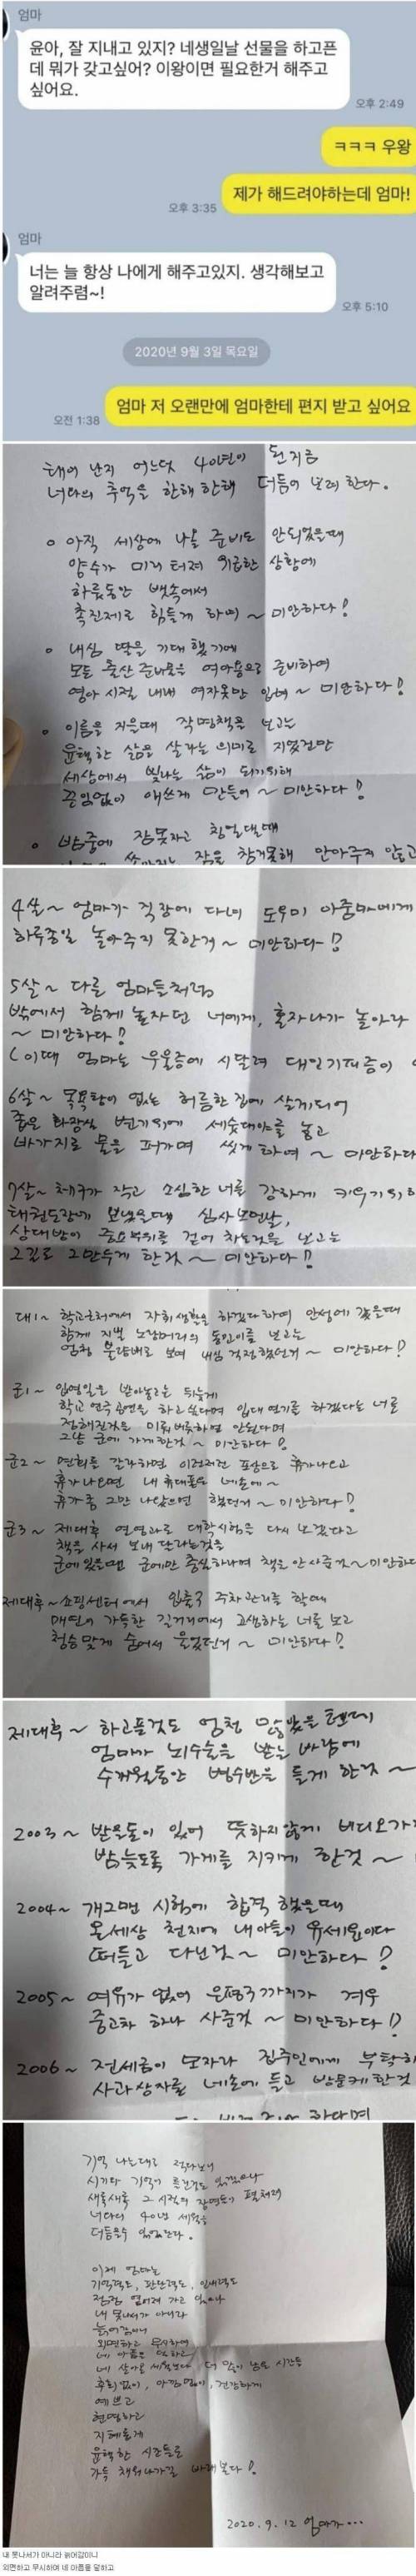 엄마
윤아, 잘 지내고 있지? 네생일날 선물을 하고픈
데 뭐가 갖고싶어? 이왕이면 필요한거 해주고
싶어요.
오후 2:49
ㅋㅋㅋ 우왕
제가 해드려야하는데 엄마!
오후 3:35
엄마
너는 늘 항상 나에게 해주고있지. 생각해보고
알려주렴~!
오후 5:10
2020년 9월 3일 목요일
엄마 저 오랜만에 엄마한테 편지 받고 싶어요
오전 1:38
태어 난지 어느덧 40년이 된 지금
너와의 추억을 한해 한해 더듬어 보려 한다.
o 아직 세상에 나올 준비도 안되었을때
양수가 미리 터져 위급한 상황에
하룻동안 뱃속에서
촉진제로 힘들게 하여 ~ 미안하다!
o 내심 딸을 기대 했기에
모든 출산 준비물을 여아용으로 준비하여
영아 시절 내내 여자옷만 입혀 ~ 미안하다!
o 이름을 지을때 작명책을 보고는
윤택한 삶을 살라는 의미로 지었건만
세상에서 빛나는 삶이 되기위해
끈임없이 애쓰게 만들어 ~ 미안하다!
o 밤중에 잠못자고 칭얼댈때
쏟아지는 잠을 참기못해 안아주지 않고
4살 ~ 엄마가 직장에 다녀 도우미 아줌마에게
하루종일 놀아주지 못한거 ~ 미안하다!
5살 ~ 다른 엄마들처럼
밖에서 함께 놀자던 너에게, 혼자나가 놀아라
~ 미안하다!
(이때 엄마는 우울증에 시달려 대인기피증이
6살 ~ 목욕탕이 없는 허름한 집에 살게되어
좁은 화장실 변기위에 세숫대야를 놓고
바가지로 물을 퍼가며 씻게하여 ~ 미안하다
7살 ~ 체구가 작고 소심한 너를 강하게 키우기위해
태권도장에 보냈을때 심사보던날,
상대방이 중요부위를 걷어 차는것을 보고는
그길로 그만두게 한것 ~ 미안하다!
대1 ~ 학교근처에서 자취생활을 하겠다하여 안성에 갔을때
함께 지낼 노랑머리의 동인이를 보고는
엄청 불량배로 보여 내심 걱정했던거 ~ 미안하다!
군1 ~ 입영일을 받아놓고는 뒤늦게
학교 연극공연을 하고싶다며 입대 연기를 하겠다는 너를
정해진것을 미뤄버릇하면 안된다며
그냥 군에 가게한것 ~ 미안하다!
군2 ~ 면회를 갈라하면 이런저런 포상으로 휴가나오고
휴가나오면 내 휴대폰은 네손에 ~
휴가좀 그만 나왔으면 했던거 ~ 미안하다!
군3 ~ 제대후 연영과로 대학시험을 다시 보겠다고
책을 사서 보내 달라는것을
군에 있을땐 군에만 충실하라며 책을 안사준것 ~ 미안하다
제대후 ~ 쇼핑센터에서 입출구 주차관리를 할때
매연이 가득한 길거리에서 고생하는 너를 보고
청승맞게 숨어서 울었던거 ~ 미안하다!
제대후 ~ 하고픈것도 엄청 많았을 텐데
엄마가 뇌수술을 받는 바람에
수개월동안 병수발을 들게 한것 ~
2003 ~ 받을돈이 있어 뜻하지않게 비디오가
밤늦도록 가게를 지키게 한것 ~
2004 ~ 개그맨 시험에 합격 했을때
온세상 천지에 내아들이 유세윤이다
떠들고 다닌것 ~ 미안하다!
2005 ~ 여유가 없어 은평구까지가 겨우
중고차 하나 사준것 ~ 미안하다!
2006 ~ 전세금이 모자라 집주인에게 부탁하
사과상자를 네손에 들고 방문케한것
하다며
기억 나는대로 적다보니
시기와 기억이 흐린것도 있겠으나
새록새록 그 시절의 장면들이 펼쳐져
너와의 40년 세월을
더듬을수 있었단다.
이제 엄마는
기억력도, 판단력도, 인내력도
점점 옅어져 가고 있으나
내 못나서가 아니라
늙어감이니
외면하고 무시하여
네 마음을 달하고
네 살아온 세월보다 더 많이 남은 시간들
후회없이, 아낌없이, 건강하게
예쁘고
현명하고
지혜롭게
윤택한 시간들로
가득 채워나가길 바래본다!
2020. 9. 12 엄마가...
내 못나서가 아니라 늙어감이니
외면하고 무시하여 네 마음을 달하고